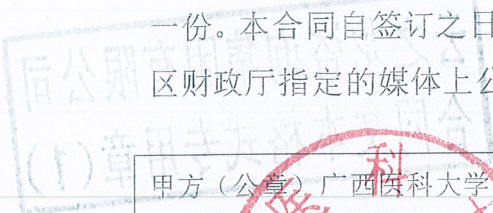 一份。本合同自签订之日
区财政厅指定的媒体上公
甲方（公章）广西医科大学
医 科